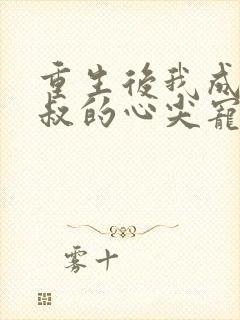 重生後我成
叔的心尖寵
雾十